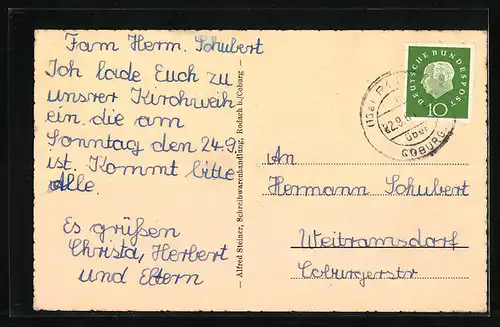 Fam Herm. Schubert
Ich lade Euch zu
unsrer Kirchweih
ein. die am
Sonntag den 24.9.
ist. Kommt bitte
Alle.
Es grüßen
Christa, Herbert
und Eltern
Alfred Steiner, Schreibwarenhandlung, Rodach b./Coburg
DEUTSCHE BUNDESPOST
10
(13a)
22.9.
über
COBURG
An
Hermann Schubert
Weitramsdorf
Coburgerstr